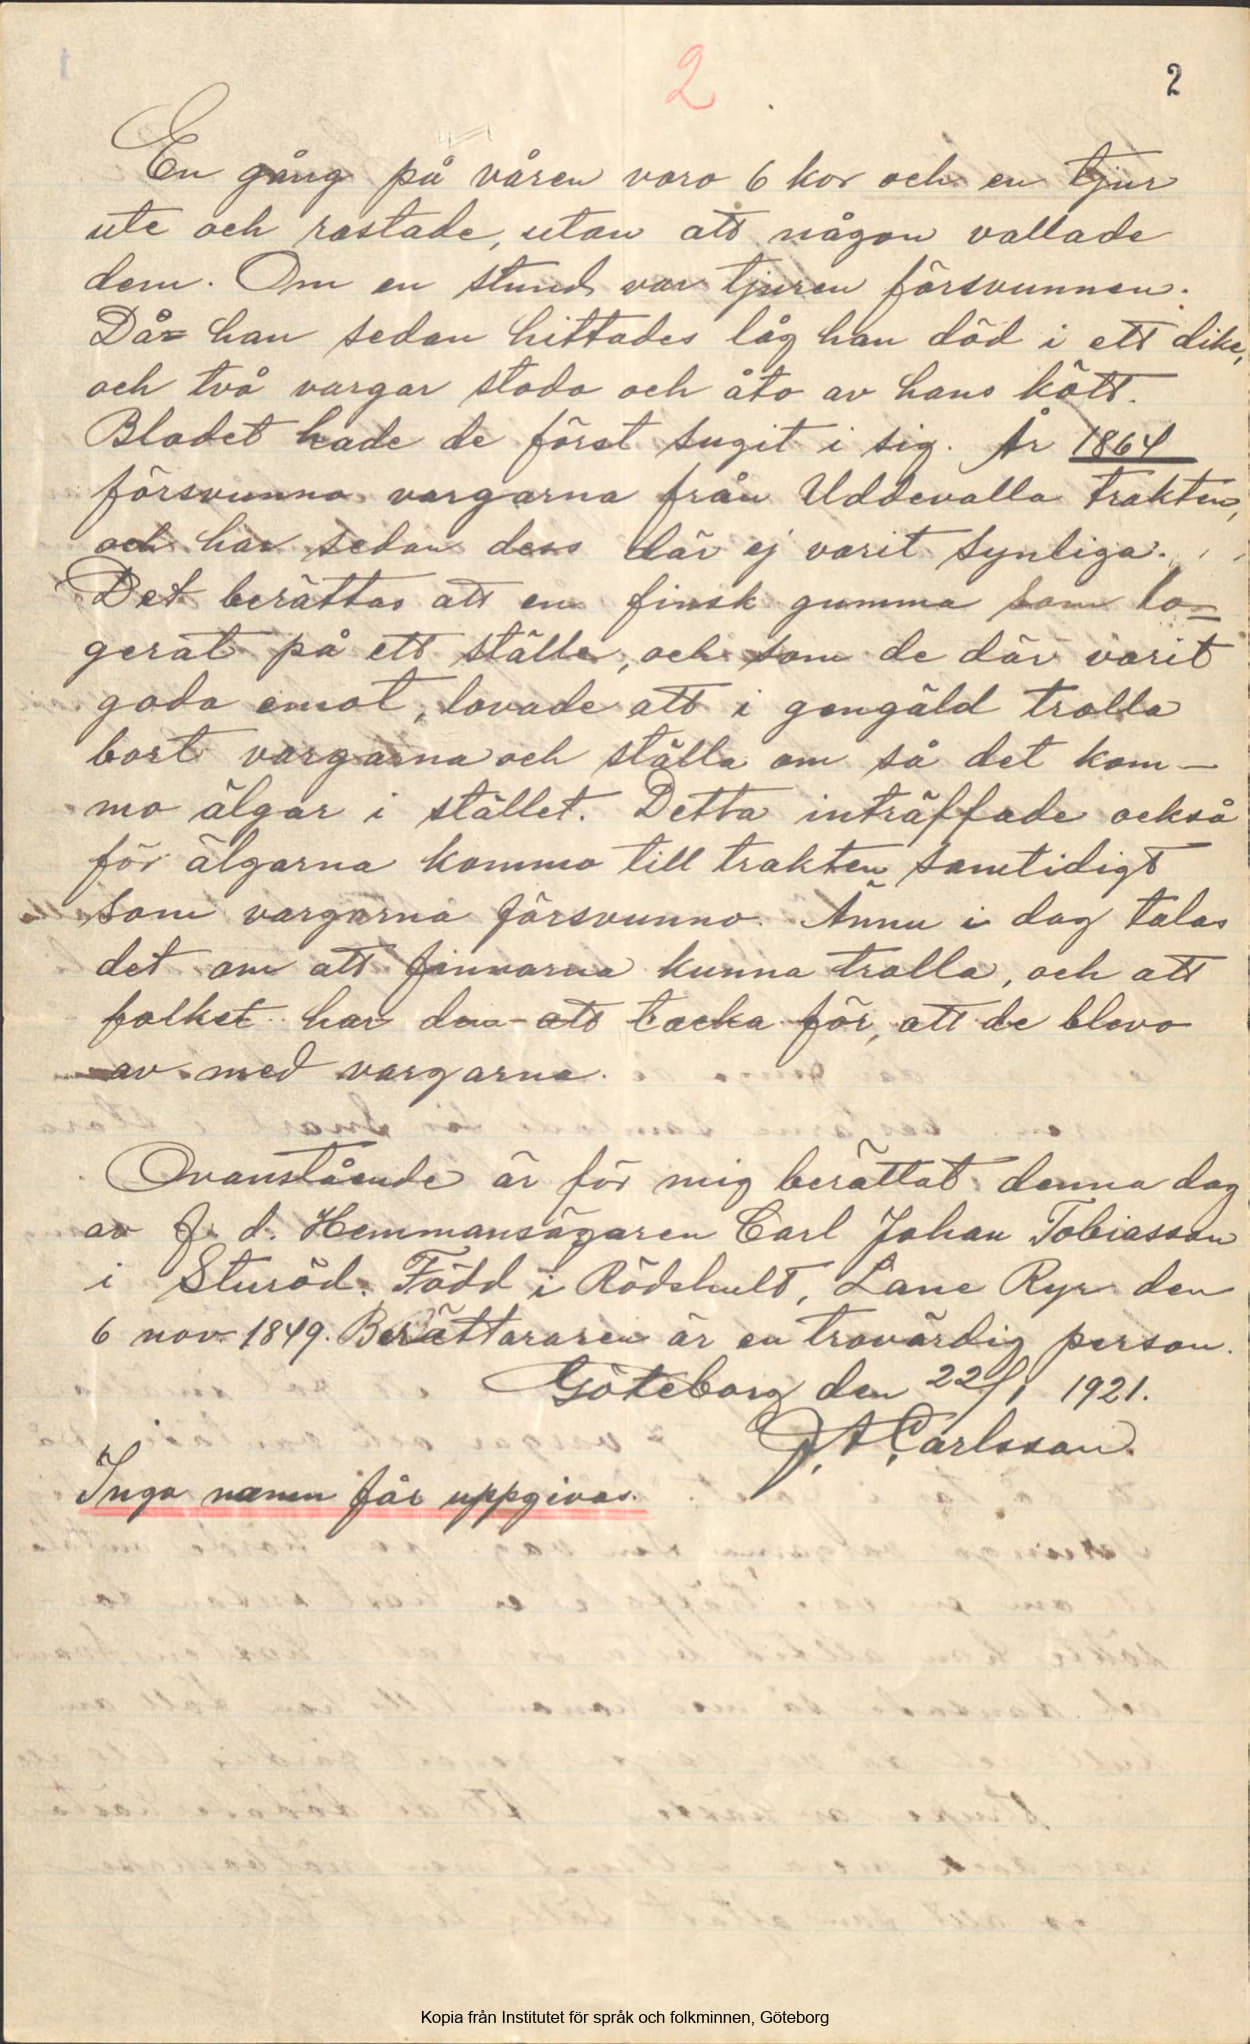 2
2
En gång på våren voro 6 kor och en tjur
ute och rastade, utan att någon vallade
dem. Om en stund var tjuren försvunnen.
Då han sedan hittades låg han död i ett dike,
och två vargar stodo och åto av hans kött.
Blodet hade de först sugit i sig. År 1864
försvunno vargarna från Uddevalla trakten,
och har sedan dess där ej varit synliga.
Det berättas att en finsk gumma som lo=
gerat på ett ställe, och som de där varit
goda emot, lovade att i gengäld trolla
bort vargarna och ställa om så det kom-
mo älgar i stället. Detta inträffade också
för älgarna kommo till trakten samtidigt
som vargarna försvunno. Ännu i dag talas
det om att finnarna kunna trolla, och att
folket har dem att tacka för, att de blevo
av med vargarna.
Ovanstående är för mig berättat denna dag
av f. d. Hemmansägaren Carl Johan Tobiasson
i Sturöd. Född i Rödshult, Lane Ryr den
6 nov. 1849. Berättararen är en trovärdig person.
Göteborg den 22/1 1921.
J. A. Carlsson.
Inga namn får uppgivas.
Kopia från Institutet för språk och folkminnen, Göteborg